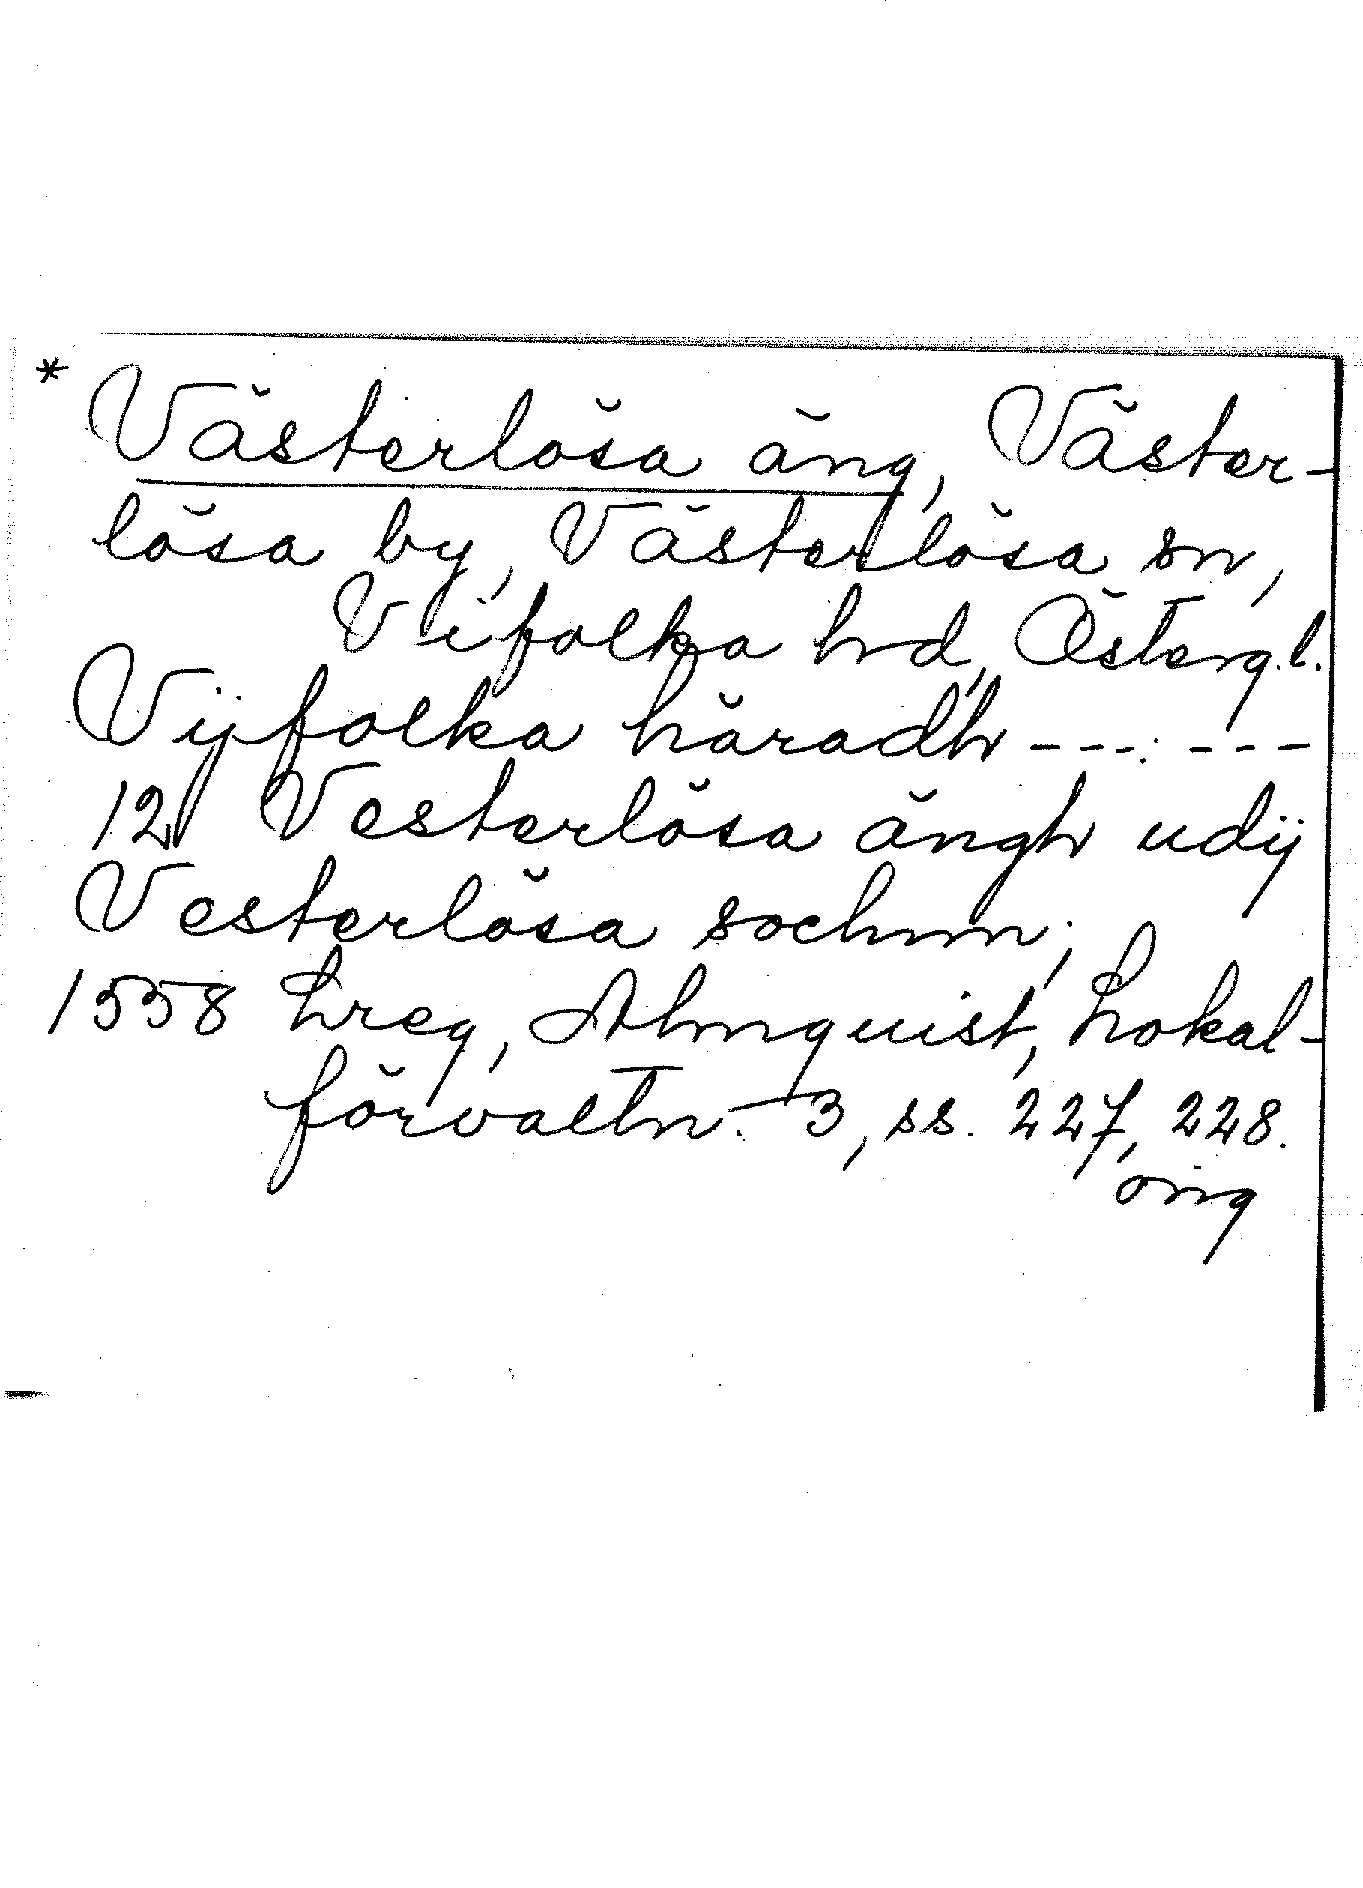 * Västerlösa äng, Väster-
lösa by, Västerlösa sn,
Vifolka hd, Österg.l.
Vijfolka häradh ---:---
12 Vesterlösa ängh udij
Vesterlösa sochnn;
1558 Lreg, Almquist, Lokal-
förvaltn. 3, ss. 227, 228.